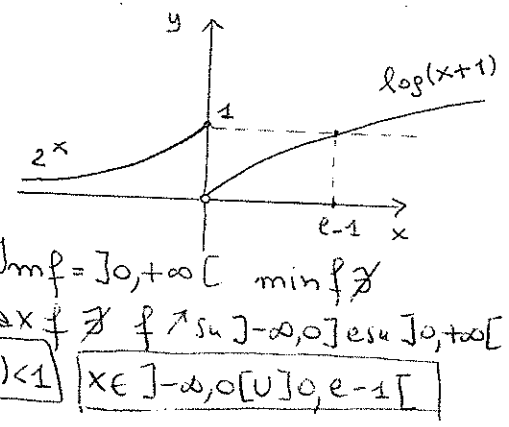 y
log(x+1)
1
2^x
e-1 x
Imf = ]0,+∞[ min f ∄
ax f ∄ f ↗ su ]-∞,0] e su ]0,+∞[
)<1 x∈ ]-∞,0[∪]0,e-1[